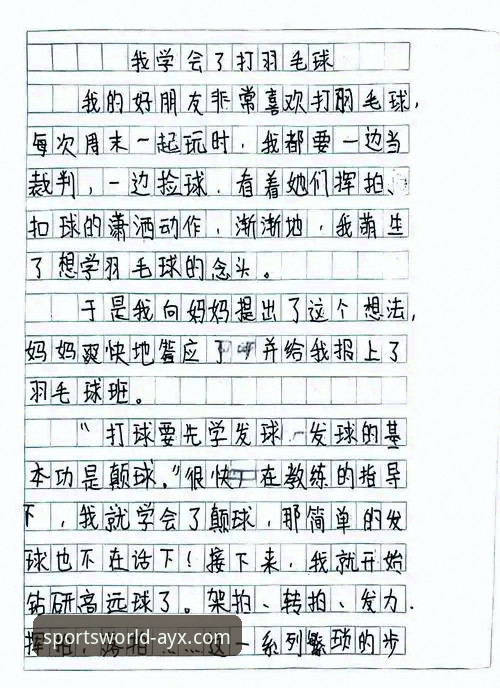 我学会了打羽毛球
我的好朋友非常喜欢打羽毛球，
每次周末一起玩时，我都要一边当
裁判，一边捡球，看着她们挥拍、
扣球的潇洒动作，渐渐地，我萌生
了想学羽毛球的念头。
于是我向妈妈提出了这个想法，
妈妈爽快地答应了 并给我报上了
羽毛球班。
“打球要先学发球，发球的基
本功是颠球。”很快，在教练的指导
下，我就学会了颠球，那简单的发
球也不在话下！接下来，我就开始
钻研高远球了。架拍、转拍、发力、
这一系列繁琐的步
sportsworld-ayx.com